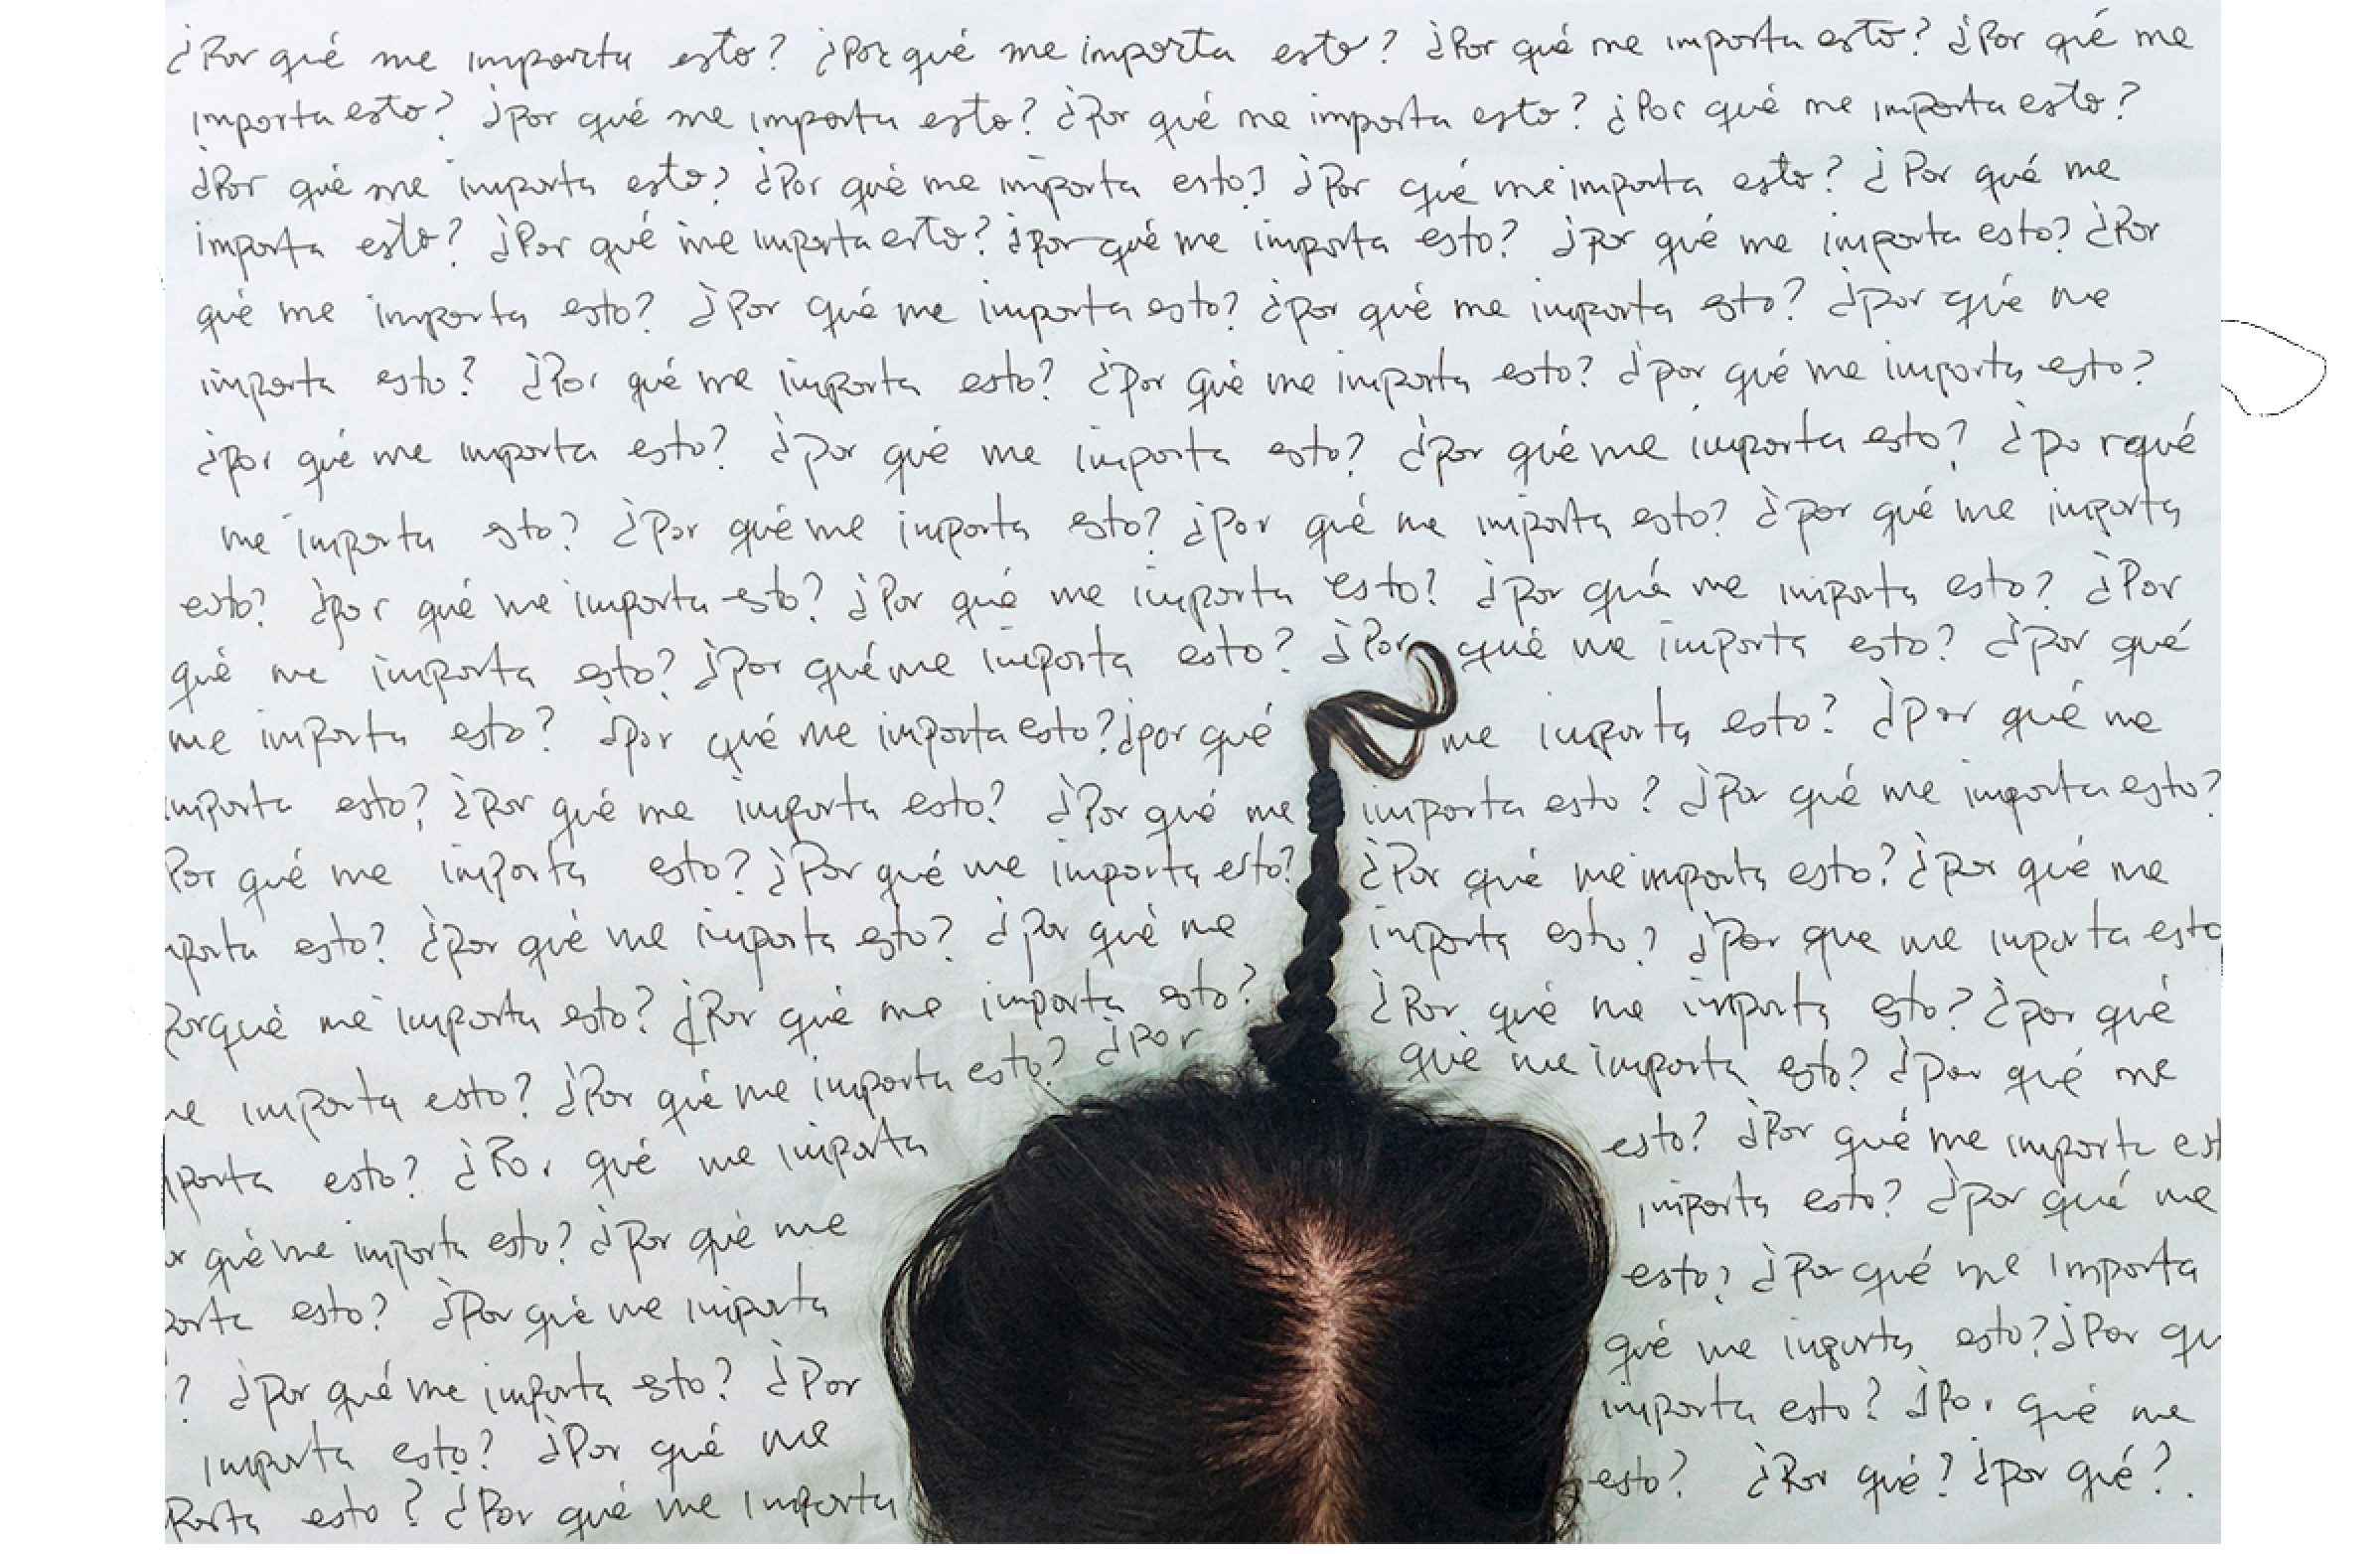 ¿Por qué me importa esto? ¿Por qué me importa esto? ¿Por qué me importa esto? ¿Por qué me
importa esto? ¿Por qué me importa esto? ¿Por qué me importa esto? ¿Por qué me importa esto?
¿Por qué me importa esto? ¿Por qué me importa esto? ¿Por qué me importa esto? ¿Por qué me
importa esto? ¿Por qué me importa esto? ¿por qué me importa esto? ¿por qué me importa esto? ¿Por
qué me importa esto? ¿Por qué me importa esto? ¿por qué me importa esto? ¿por qué me
importa esto? ¿Por qué me importa esto? ¿Por qué me importa esto? ¿por qué me importa esto?
¿por qué me importa esto? ¿por qué me importa esto? ¿por qué me importa esto? ¿po rqué
me importa esto? ¿Por qué me importa esto? ¿por qué me importa esto? ¿por qué me importa
esto? ¿por qué me importa esto? ¿Por qué me importa esto? ¿por qué me importa esto? ¿Por
qué me importa esto? ¿por qué me importa esto? ¿Por qué me importa esto? ¿por qué
me importa esto? ¿por qué me importa esto? ¿por qué me importa esto? ¿Por qué me
importa esto? ¿por qué me importa esto? ¿Por qué me importa esto? ¿Por qué me importa esto?
Por qué me importa esto? ¿Por qué me importa esto? ¿Por qué me importa esto? ¿por qué me
mporta esto? ¿por qué me importa esto? ¿por qué me importa esto? ¿Por que me importa esto
Porqué me importa esto? ¿Por qué me importa esto? ¿Por qué me importa esto? ¿por qué
me importa esto? ¿Por qué me importa esto? ¿Por qué me importa esto? ¿por qué me
mporta esto? ¿Por qué me importa esto? ¿Por qué me importa est
or qué me importa esto? ¿Por qué me importa esto? ¿por qué me
porta esto? ¿Por qué me importa esto? ¿Por qué me importa
? ¿Por qué me importa esto? ¿Por qué me importa esto? ¿Por qu
importa esto? ¿Por qué me importa esto? ¿Por qué me
Porta esto? ¿Por qué me importa esto? ¿Por qué? ¿por qué?